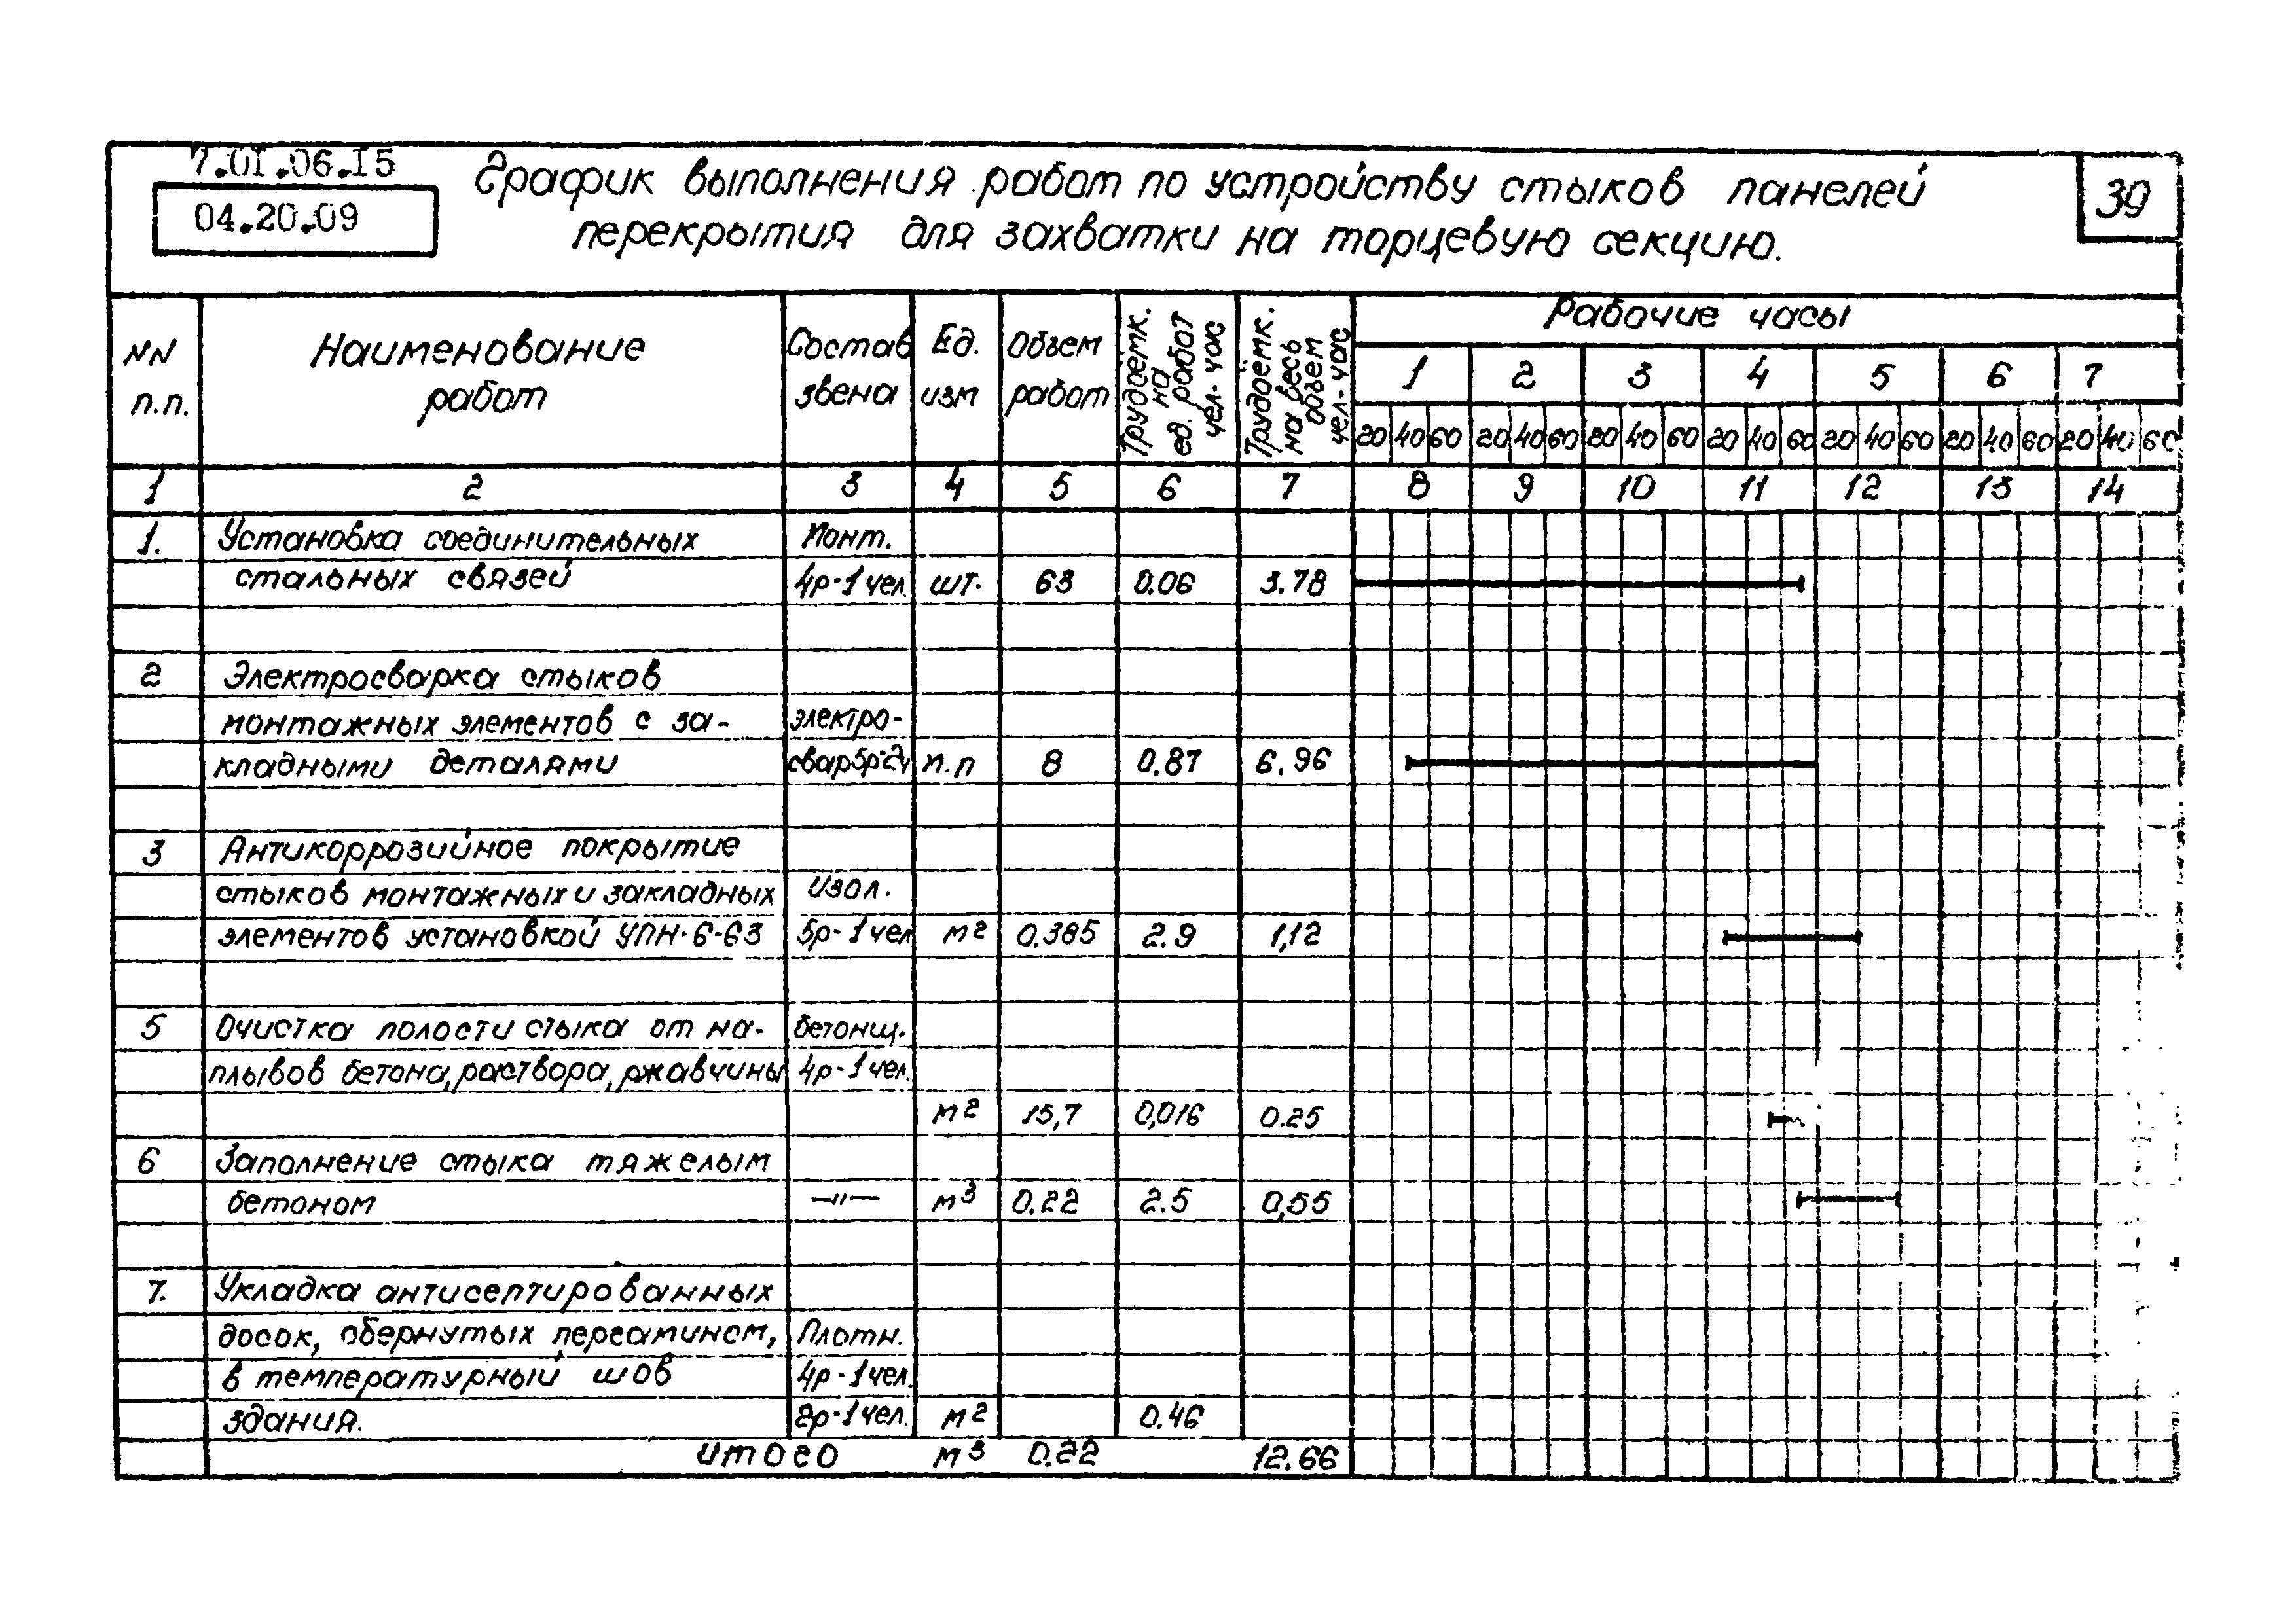 7.01.06.15
04.20.09
График выполнения работ по устройству стыков панелей
перекрытия для захватки на торцевую секцию.
39
NN
п.п.
Наименование
работ
Состав
звена
Ед.
изм
Объем
работ
Трудоёмк.
на
ед. работ
чел-час
Трудоёмк.
на весь
объем
чел-час
Рабочие часы
1 2 3 4 5 6 7
20 40 60 20 40 60 20 40 60 20 40 60 20 40 60 20 40 60 20 40 60
1 2 3 4 5 6 7 8 9 10 11 12 13 14
1. Установка соединительных Монт.
стальных связей 4р-1чел. шт. 63 0.06 3.78
2 Электросварка стыков
монтажных элементов с за- электро-
кладными деталями свар5р-2ч п.п 8 0.87 6.96
3 Антикоррозийное покрытие
стыков монтажных и закладных изол.
элементов установкой УПН-6-63 5р-1чел м2 0.385 2.9 1,12
5 Очистка полости стыка от на- бетонщ.
плывов бетона, раствора, ржавчины 4р-1чел.
м2 15,7 0,016 0.25
6 Заполнение стыка тяжелым
бетоном —"— м3 0.22 2.5 0,55
7. Укладка антисептированных
досок, обернутых пергамином, Плотн.
в температурный шов 4р-1чел.
здания. 2р-1чел. м2 0.46
итого м3 0.22 12.66